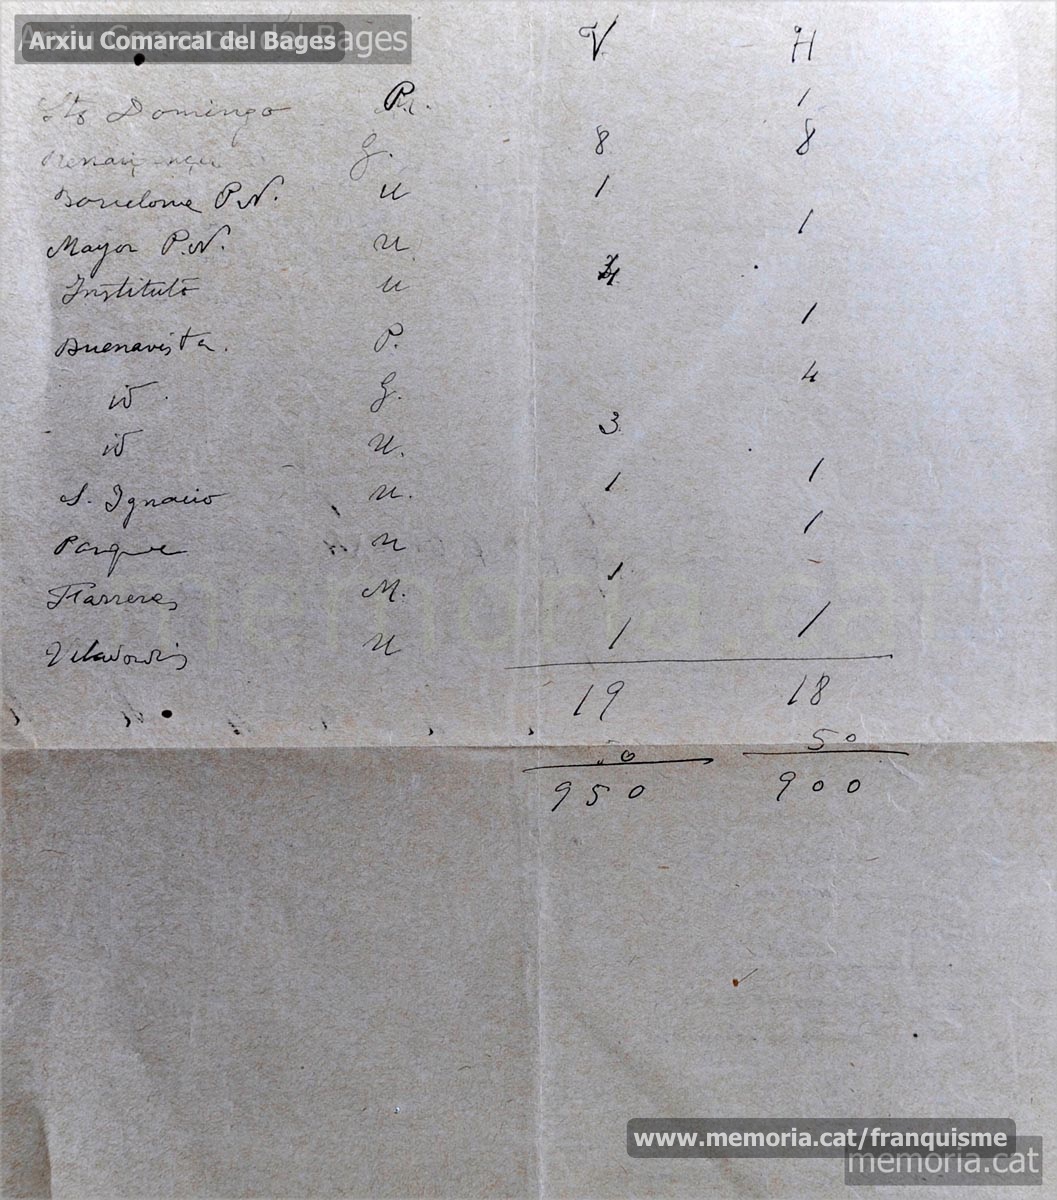 Arxiu Comarcal del Bages
V H
Sto Domingo P. 1
G. 8 8
Barcelona P.N. U 1
Mayor P.N. U. 1
Instituto U 4
Buenavista. P. 1
id. G. 4
id U. 3
S. Ignacio U. 1 1
Parque U 1
Farreras M. 1
Viladordis U 1 1
19 18
50
950 900
www.memoria.cat/franquisme
memoria.cat